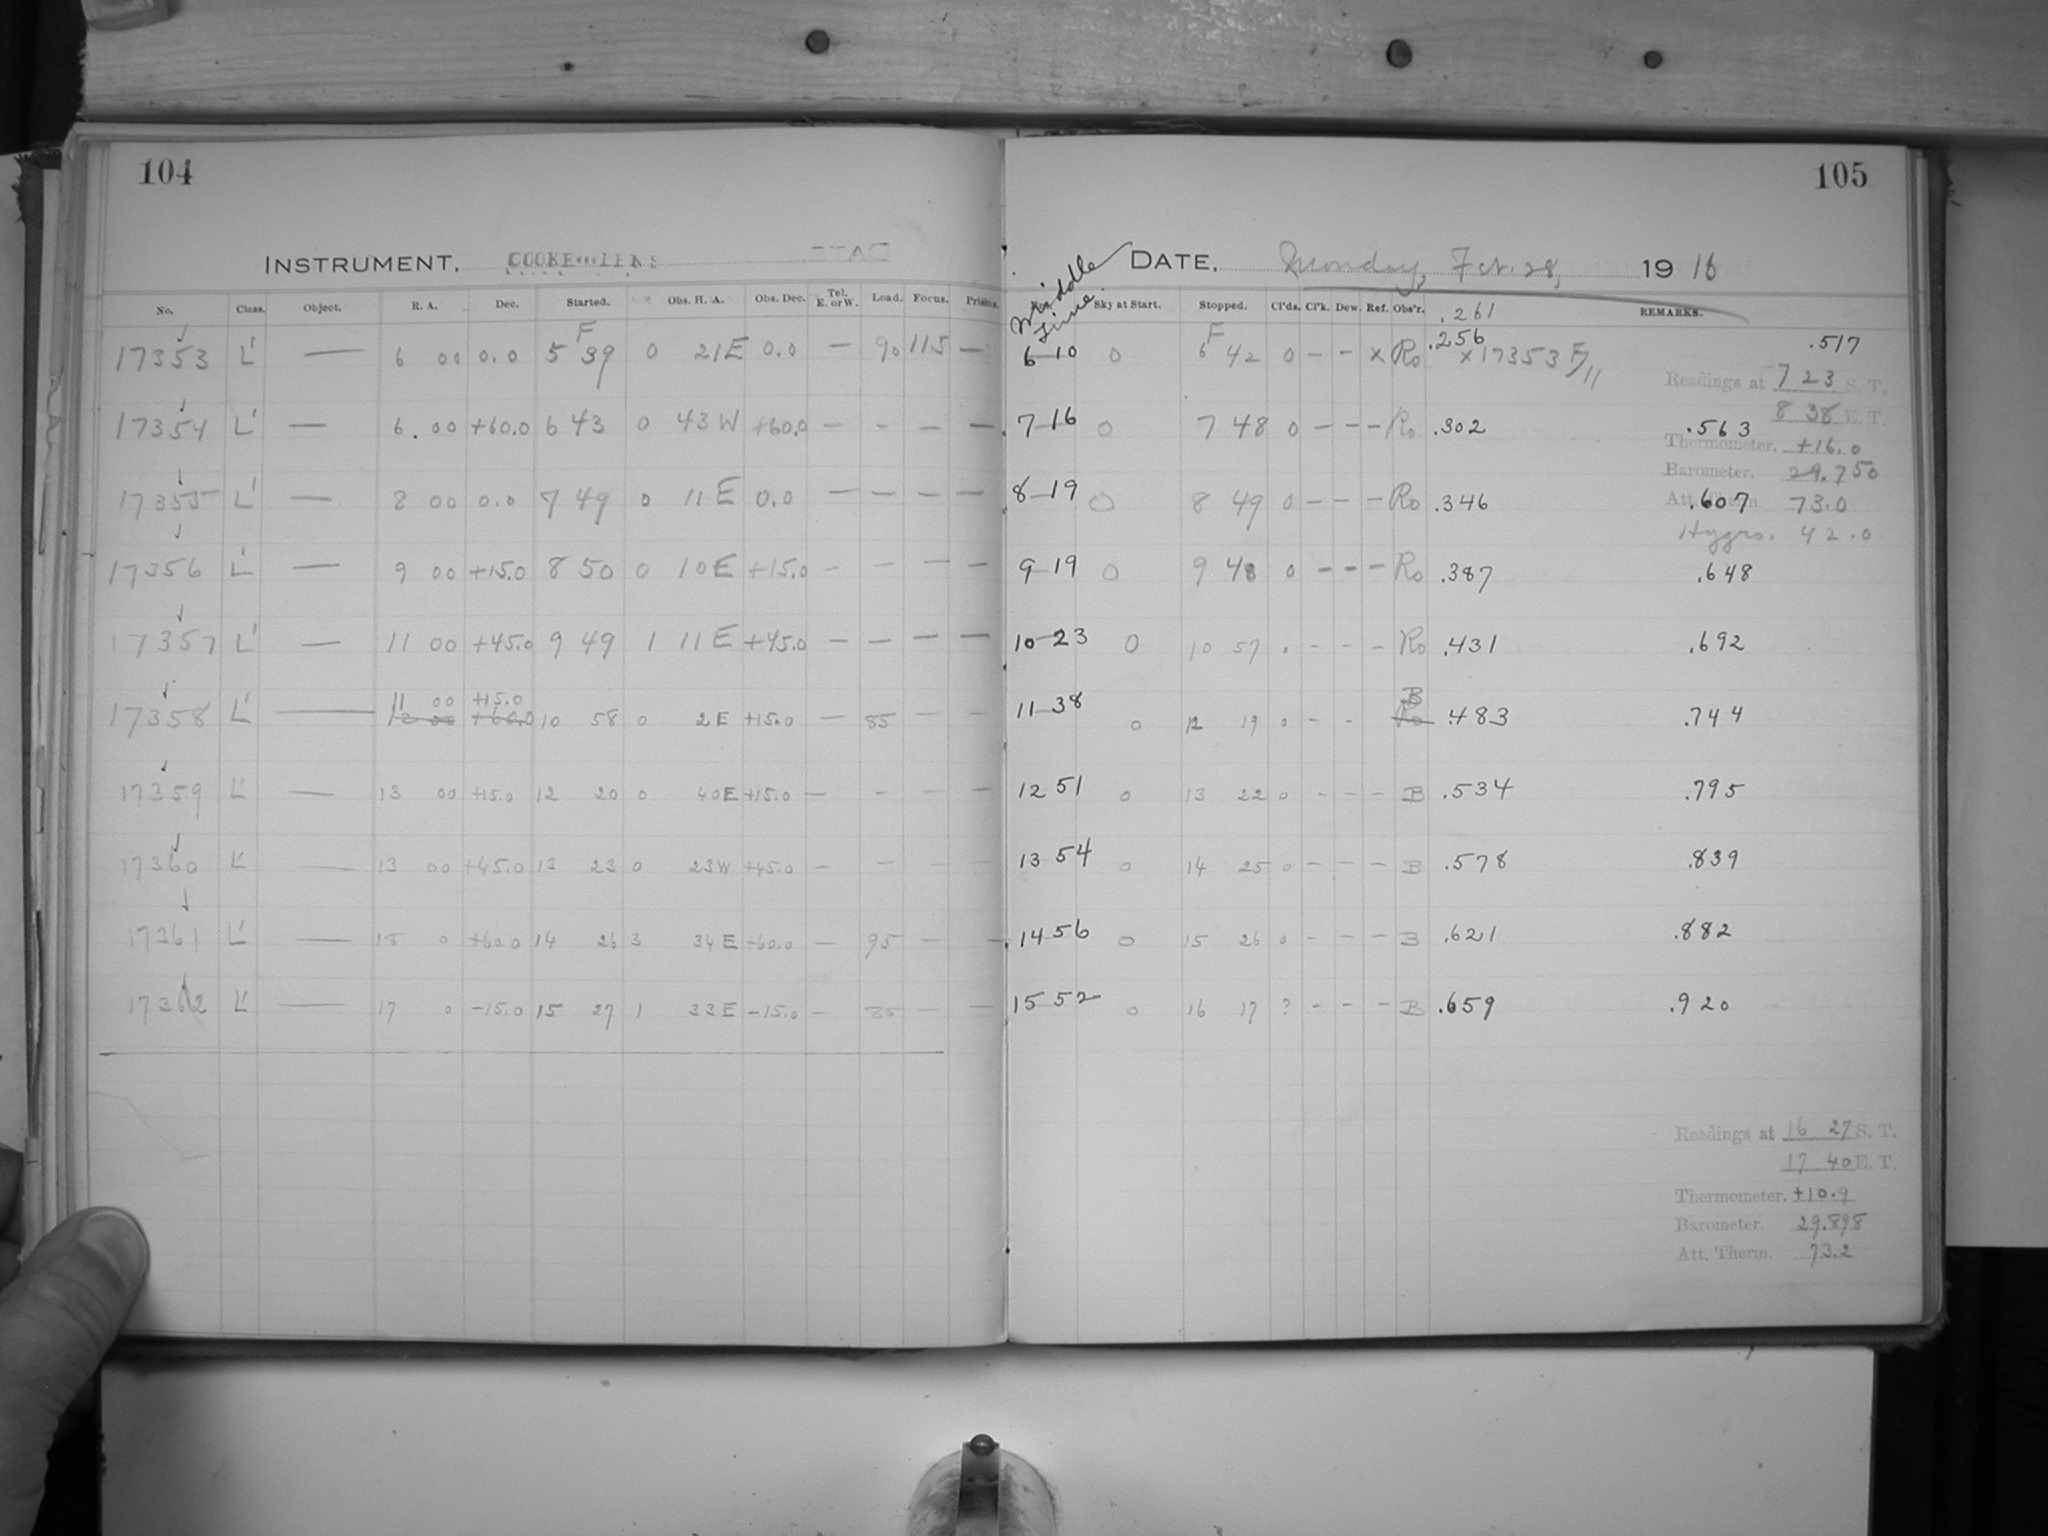 104
INSTRUMENT. COOKE LENS
No. Class. Object. R. A. Dec. Started. Obs. H. A. Obs. Dec. Tel. E. or W. Load. Focus. Prisms.
17353 L' — 6 00 0.0 5 F 39 0 21 E 0.0 — 90 115 —
17354 L' — 6.00 +60.0 6 43 0 43 W +60.0 — — — —
17355 L' — 8 00 0.0 7 49 0 11 E 0.0 — — — —
17356 L' — 9 00 +15.0 8 50 0 10 E +15.0 — — — —
17357 L' — 11 00 +45.0 9 49 1 11 E +45.0 — — — —
11 00 +15.0
17358 L' — 10 58 0 2 E +15.0 — 85 — —
17359 L' — 13 00 +15.0 12 20 0 40 E +15.0 — - - -
17360 L' — 13 00 +45.0 13 23 0 23 W +45.0 — - - -
17361 L' — 18 0 +60.0 14 26 3 34 E +60.0 — 95 — —
17362 L' — 17 0 -15.0 15 27 1 33 E -15.0 — 85 — —
105
DATE. Monday, Feb. 28, 1916
Middle Time
Sky at Start. Stopped. Cl'ds. Cl'k. Dew. Ref. Obs'r. .261 REMARKS.
6-10 0 6 F 42 0 - - x Ro .256 x 17353 F/11 .517
Readings at 7 23 S. T.
8 38 E. T.
7-16 0 7 48 0 - - - Ro .302 .563
Thermometer. +16.0
Barometer. 29.750
8-19 0 8 49 0 - - - Ro .346 .607
Att. Therm. 73.0
Hygro. 42.0
9-19 0 9 48 0 - - - Ro .387 .648
10-23 0 10 57 0 - - - Ro .431 .692
11-38 0 12 19 0 - - B Ro .483 .744
12 51 0 13 22 0 - - - B .534 .795
13 54 0 14 25 0 - - - B .578 .839
14 56 0 15 26 0 - - - B .621 .882
15 52 0 16 17 ? - - - B .659 .920
Readings at 16 27 S. T.
17 40 E. T.
Thermometer. +10.9
Barometer. 29.898
Att. Therm. 73.2